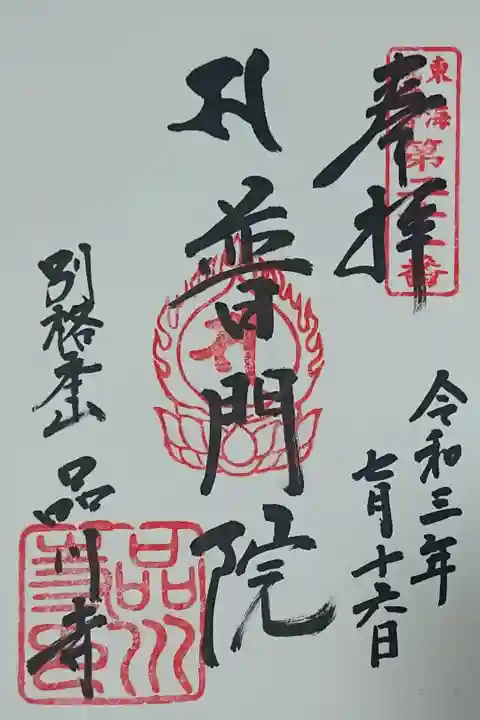 奉拝
令和三年
七月十六日
普門院
別格本山
品川寺
東海
第三十一番
品川寺印